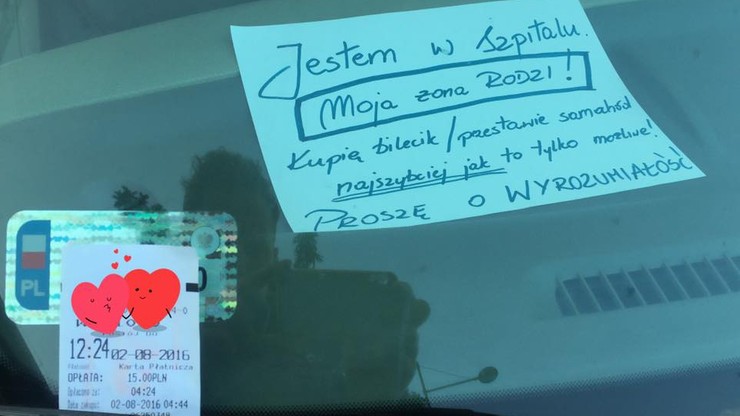 Jestem w Szpitalu.
Moja żona RODZI!
Kupię bilecik/przestawię samochód
najszybciej jak to tylko możliwe!
PROSZĘ O WYROZUMIAŁOŚĆ
PL
12:24 02-08-2016
Karta Płatnicza
OPŁATA: 15.00PLN
04:24
02-08-2016 04:44